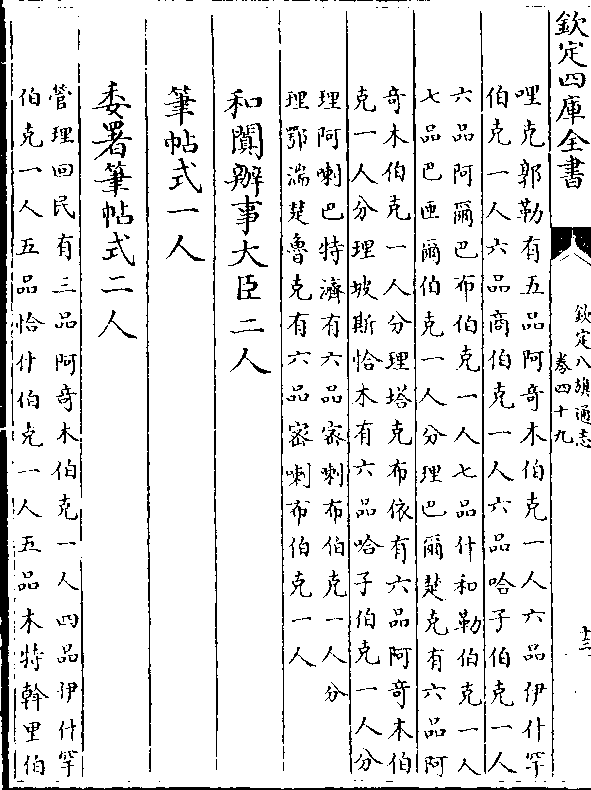 欽定四庫全書
欽定八旗通志
卷四十九
十三
哩克郭勒有五品阿奇木伯克一人六品伊什罕
伯克一人六品商伯克一人六品哈子伯克一人
六品阿爾巴布伯克一人七品什和勒伯克一人
七品巴匝爾伯克一人分理巴爾楚克有六品阿
奇木伯克一人分理塔克布依有六品阿奇木伯
克一人分理坡斯恰木有六品哈子伯克一人分
理阿喇巴特濟有六品密喇布伯克一人分
理鄂湍楚魯克有六品密喇布伯克一人
和闐辦事大臣二人
筆帖式一人
委署筆帖式二人
管理回民有三品阿奇木伯克一人四品伊什罕
伯克一人五品恰什伯克一人五品木特斡里伯